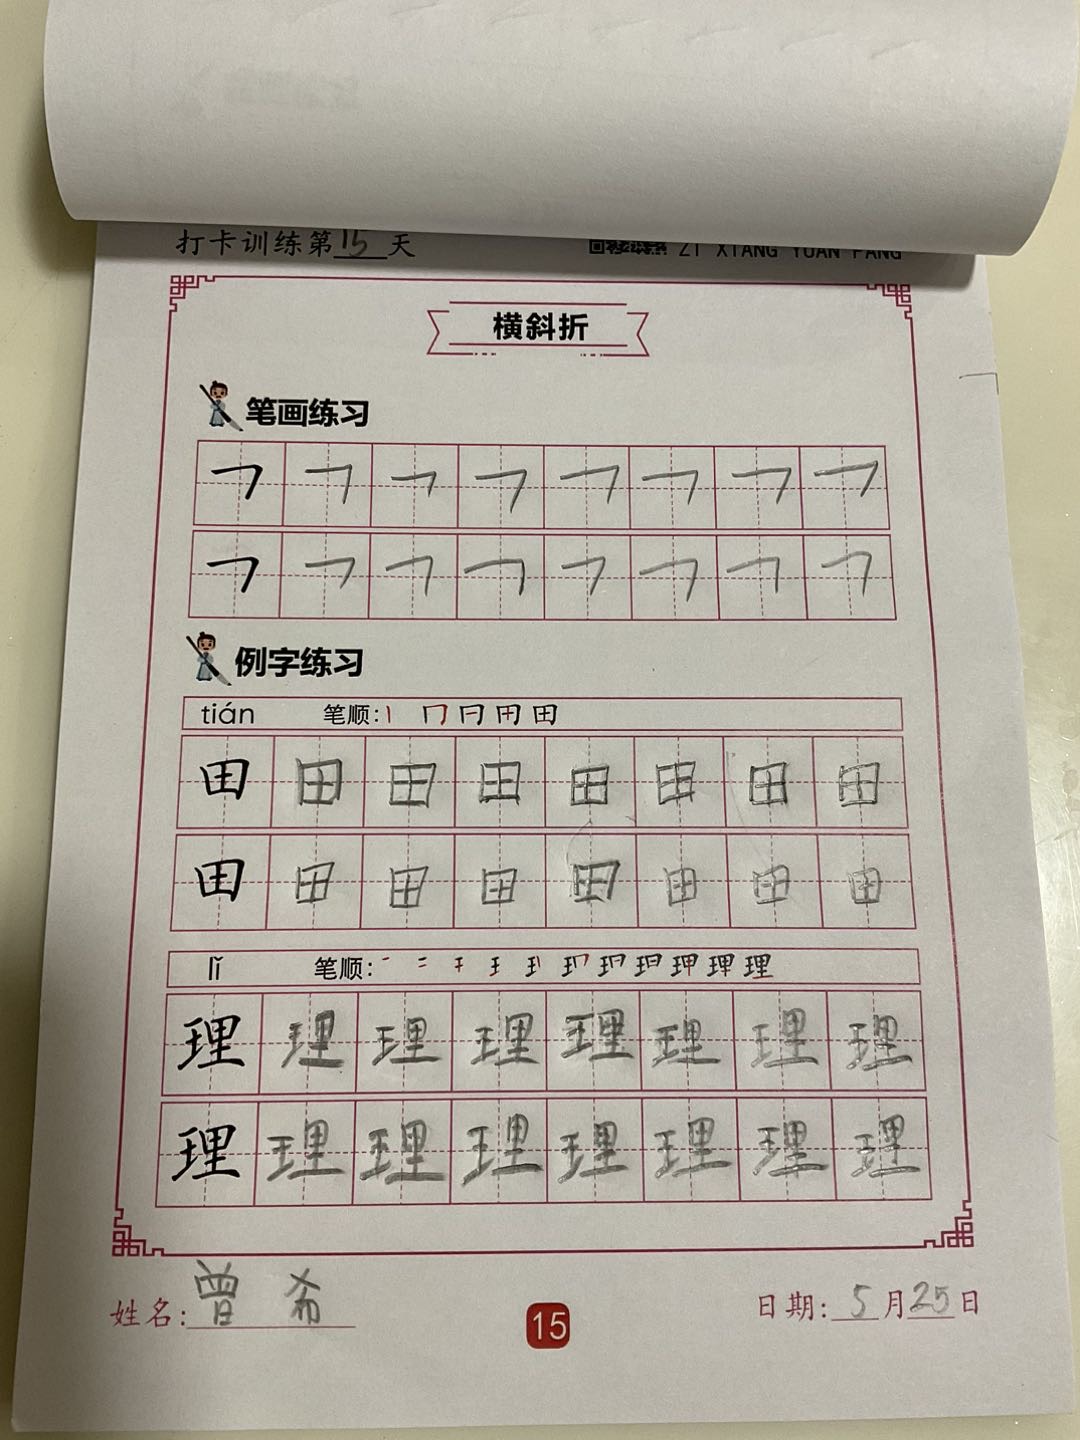 打卡训练第15天
ZI XIANG YUAN FANG
横斜折
笔画练习
㇕ ㇕ ㇕ ㇕ ㇕ ㇕ ㇕ ㇕
㇕ ㇕ ㇕ ㇕ ㇕ ㇕ ㇕ ㇕
例字练习
tián 笔顺:
田 田 田 田 田 田 田 田
田 田 田 田 田 田 田 田
lǐ 笔顺:
理 理 理 理 理 理 理 理
理 理 理 理 理 理 理 理
姓名:曾 希
15
日期:5月25日